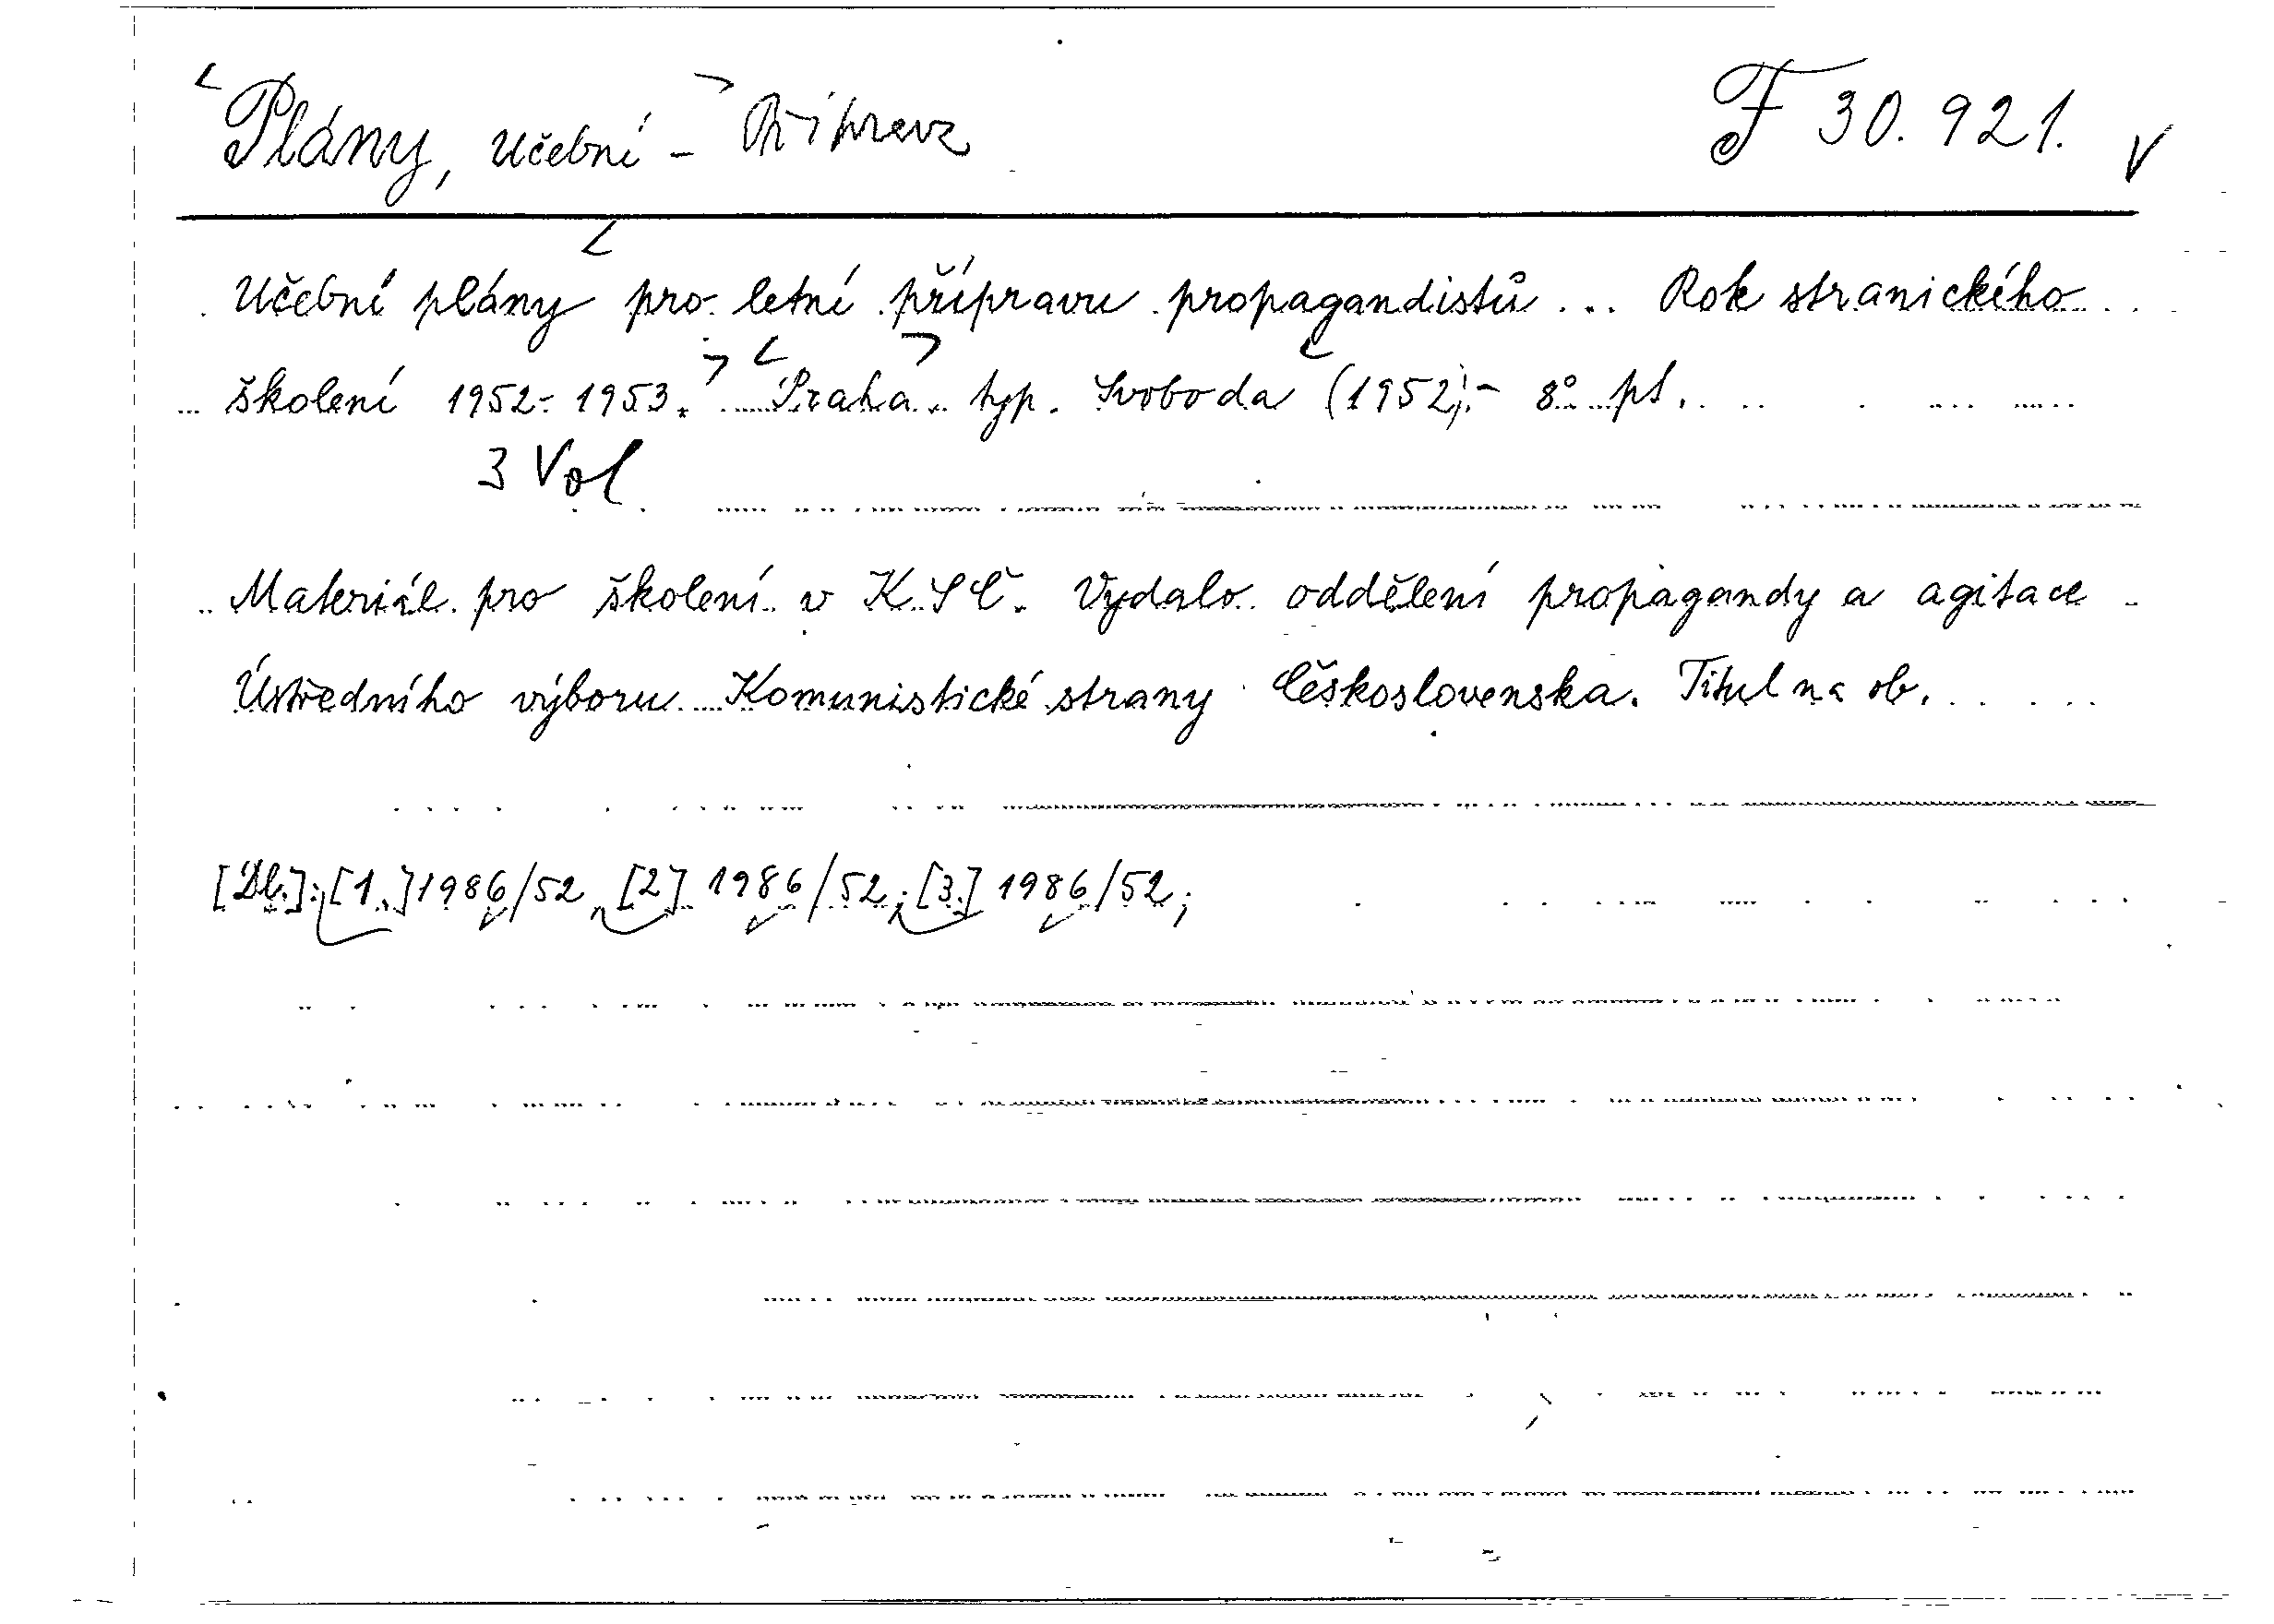 Plány, učební - Příprava F 30.921. V
Učební plány pro letní přípravu propagandistů ... Rok stranického
školení 1952-1953. Praha, typ. Svoboda (1952).- 8° pl.
3 Vol
Materiál pro školení v KSČ. Vydalo oddělení propagandy a agitace
Ústředního výboru Komunistické strany Československa. Titul na ob.
[Dl.]: [1.] 1986/52, [2] 1986/52; [3.] 1986/52;